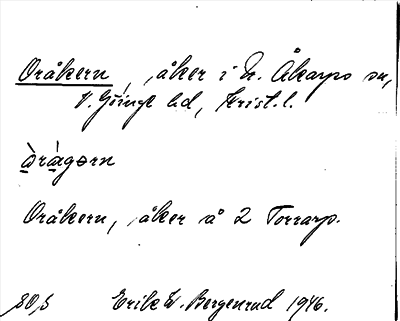 Oråkern, åker i N. Åkarps sn,
V. Göinge hd, Krist. l.
òrágərn
Oråkern, åker å 2 Torrarp.
Erik W. Bergenrud 1946.